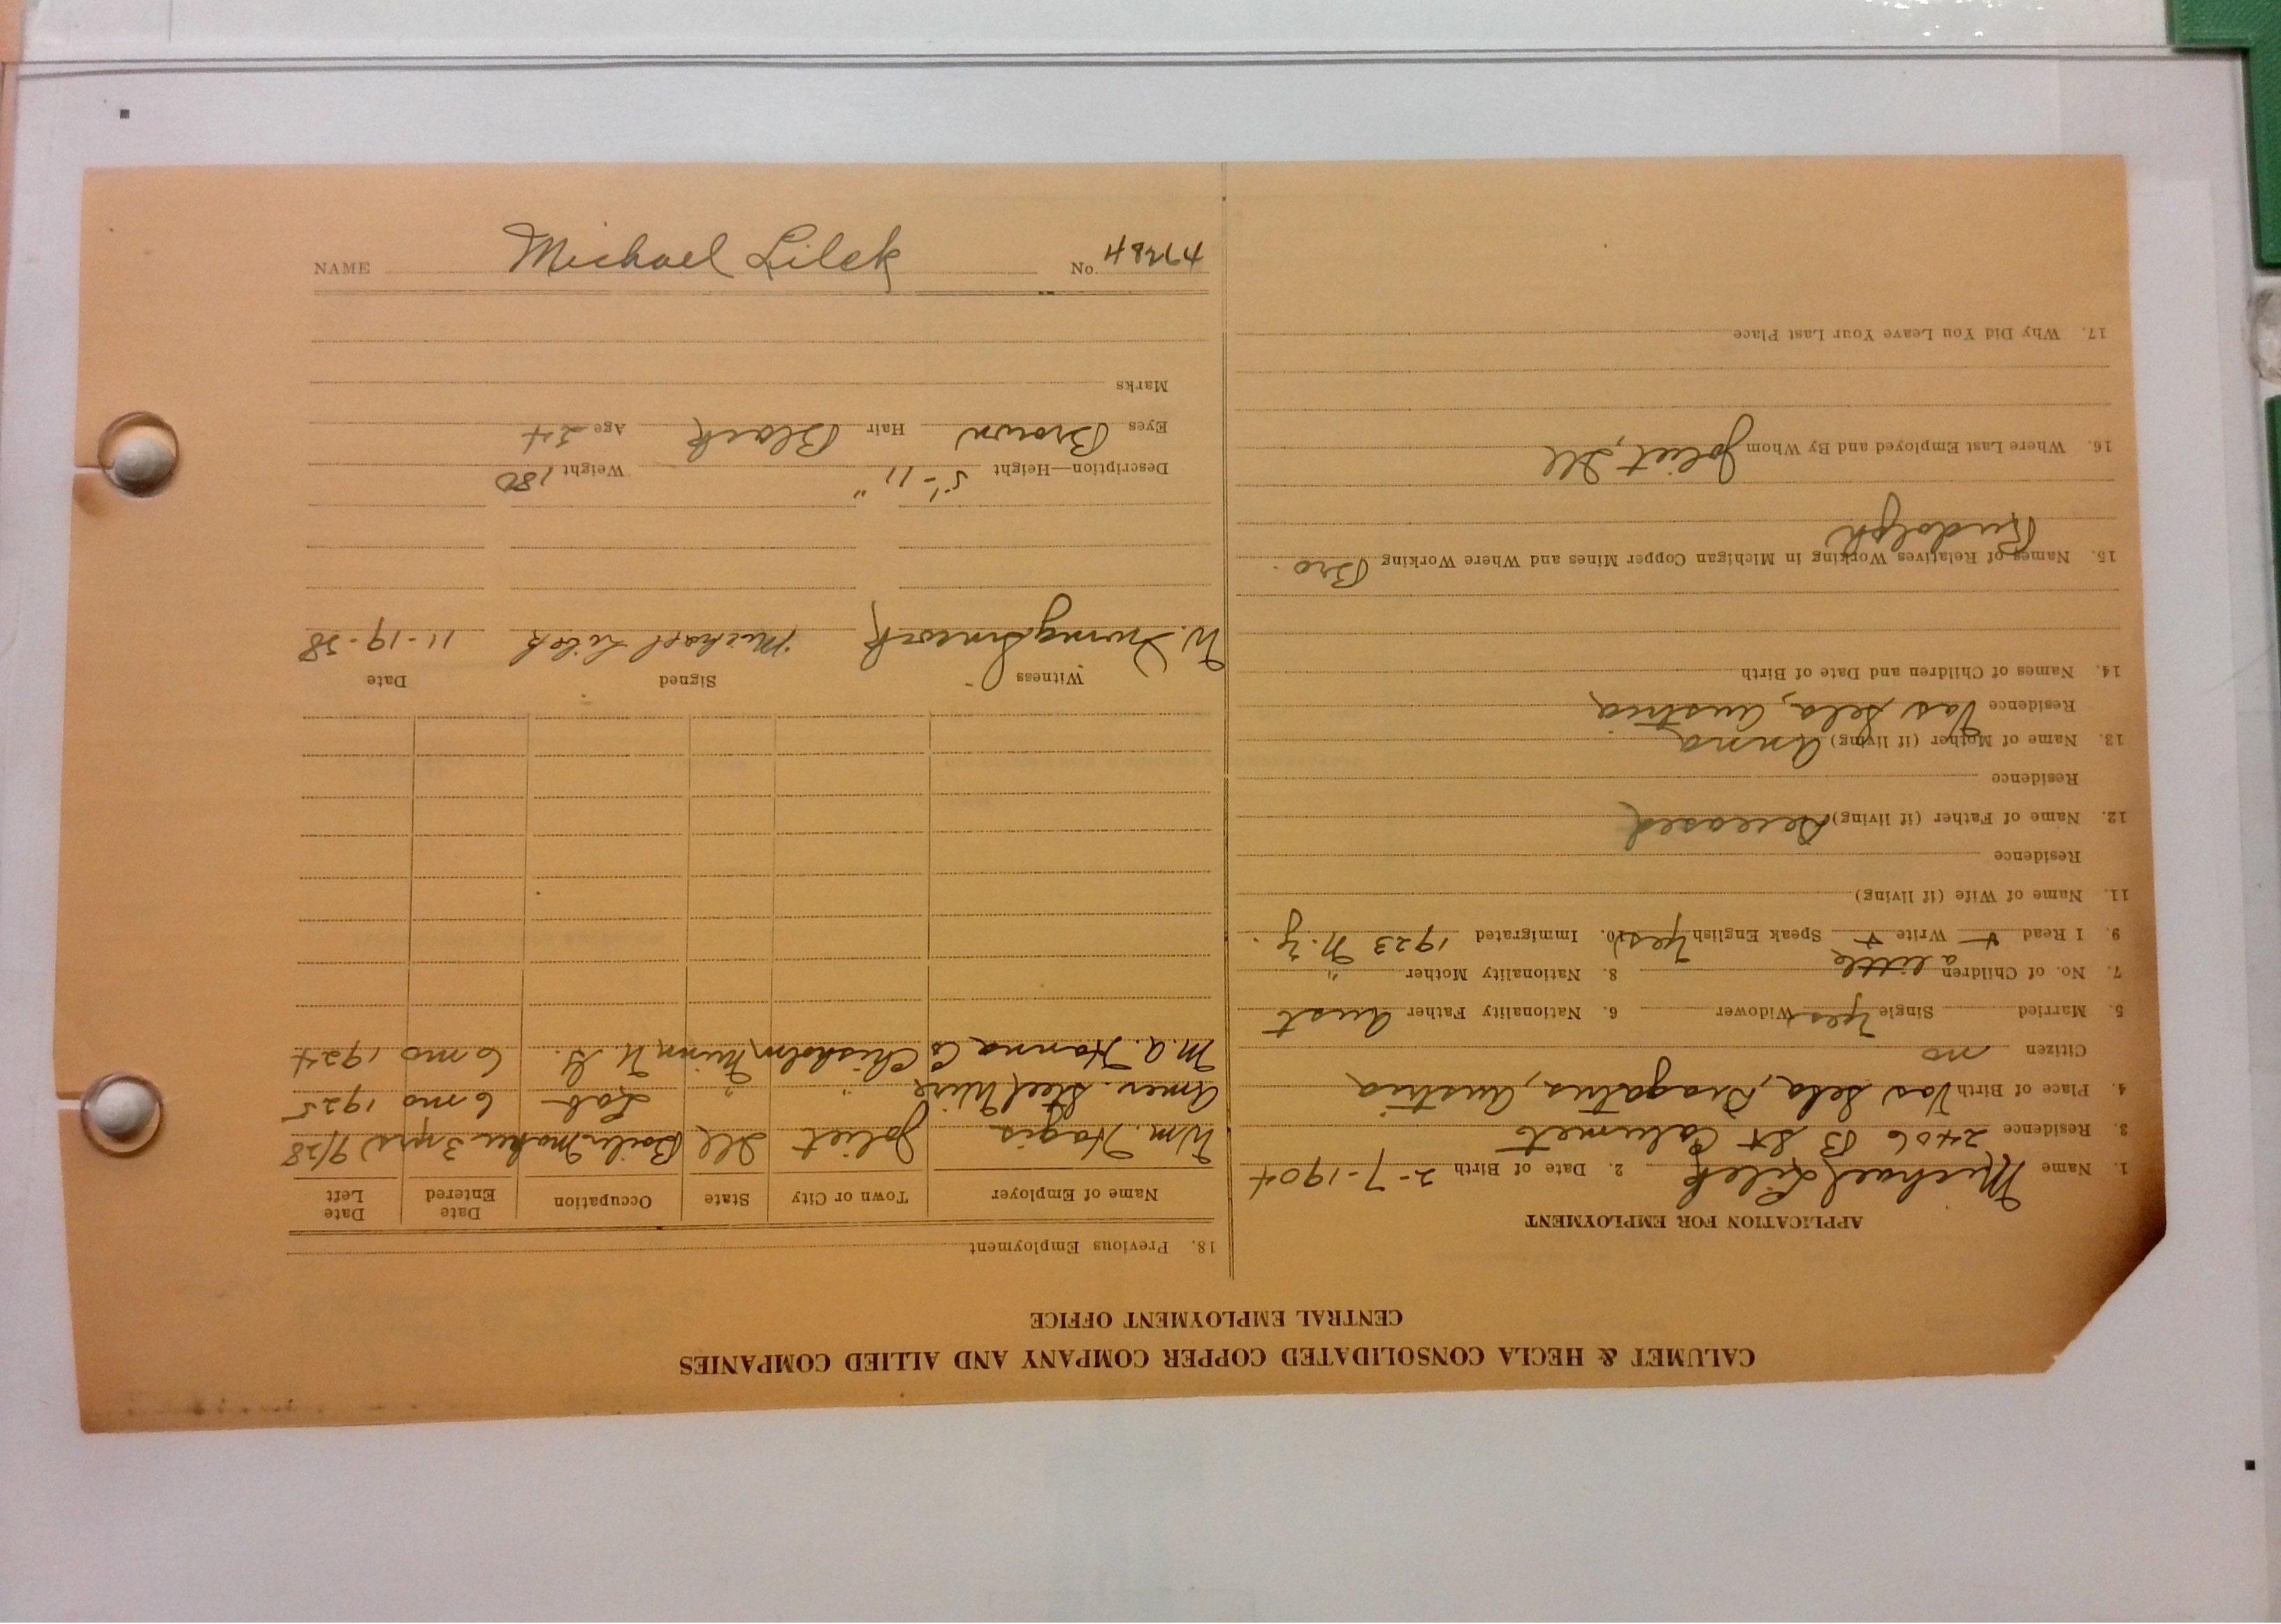 NAME Michael Lilek No. 47384
CALUMET & HECLA CONSOLIDATED COPPER COMPANY AND ALLIED COMPANIES
CENTRAL EMPLOYMENT OFFICE
APPLICATION FOR EMPLOYMENT
1. Name Michael Lilek 2. Date of Birth 2-7-1904
3. Residence 2406 B St Calumet
4. Place of Birth Vas Sela, Dragatus, Austria
Citizen no
5. Married Single Yes Widower 6. Nationality Father Aust
7. No. of Children 8. Nationality Mother "
a little
9. I Read + Write + Speak English Yes 10. Immigrated 1923 N.Y.
11. Name of Wife (if living)
Residence
12. Name of Father (if living) Deceased
Residence
13. Name of Mother (if living) Anna
Residence Vas Sela, Austria
14. Names of Children and Date of Birth
15. Names of Relatives Working in Michigan Copper Mines and Where Working Bro.
Rudolph
16. Where Last Employed and By Whom Joliet, Ill
17. Why Did You Leave Your Last Place
18. Previous Employment
Name of Employer Town or City State Occupation Date Entered Date Left
Wm. Hagis Joliet Ill Boiler Maker 3 yrs 9/28
Amer. Steel Wire " " Lab 6 mo 1925
M.A. Hanna Co Chisholm Minn U.G. 6 mo 1924
Witness Signed Date
W. Michael Lilek 11-19-28
Description—Height 5'-11" Weight 180
Eyes Brown Hair Black Age 24
Marks